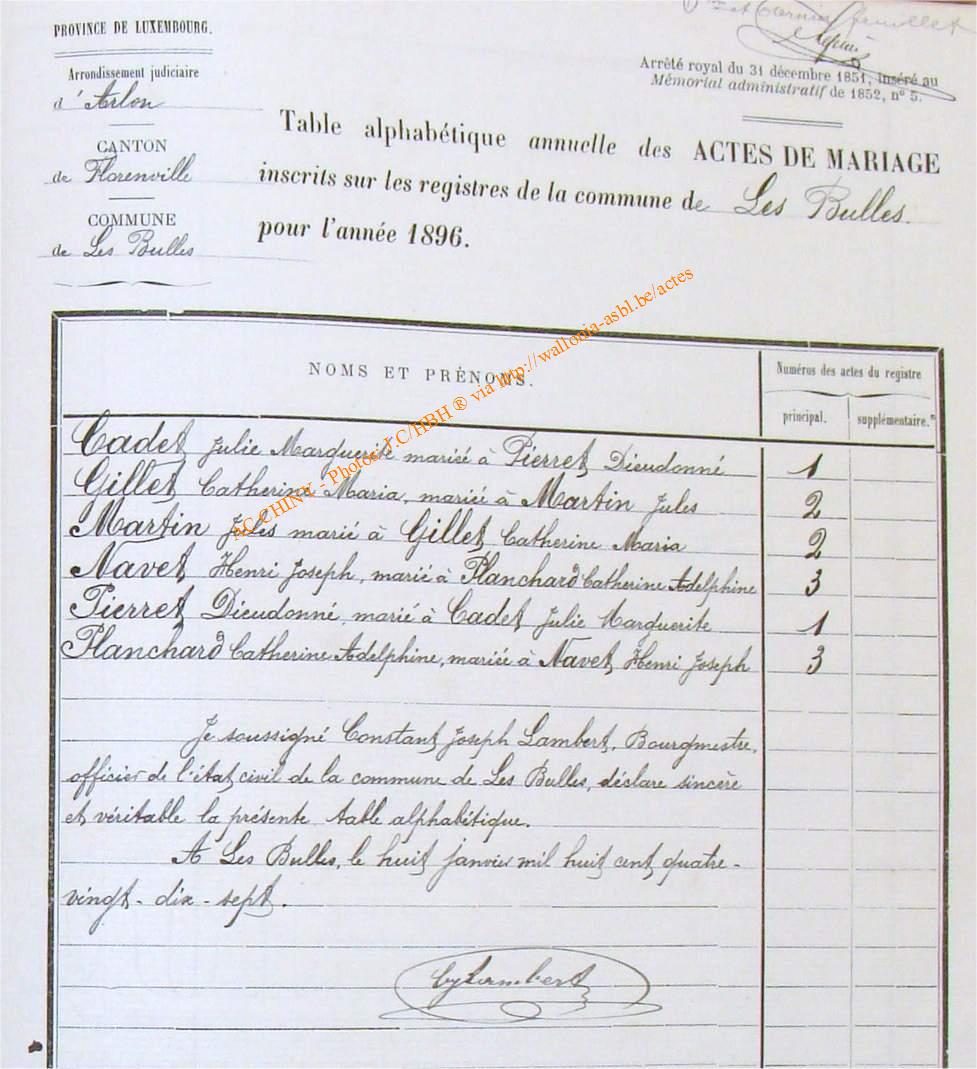 PROVINCE DE LUXEMBOURG.
Arrondissement judiciaire
d'Arlon
CANTON
de Florenville
COMMUNE
de Les Bulles
et dernier feuillet
Arrêté royal du 31 décembre 1851, inséré au
Mémorial administratif de 1852, n° 5.
Table alphabétique annuelle des ACTES DE MARIAGE
inscrits sur les registres de la commune de Les Bulles.
pour l'année 1896.
NOMS ET PRÉNOMS.
Numéros des actes du registre
principal. supplémentaire.
Cadet Julie Marguerite mariée à Pierret Dieudonné 1
Gillet Catherine Maria, mariée à Martin Jules 2
Martin Jules marié à Gillet Catherine Maria 2
Navet Henri Joseph, marié à Planchard Catherine Adelphine 3
Pierret Dieudonné, marié à Cadet Julie Marguerite 1
Planchard Catherine Adelphine, mariée à Navet Henri Joseph 3
Je soussigné Constant Joseph Lambert, Bourgmestre,
officier de l'état civil de la commune de Les Bulles, déclare sincère
et véritable la présente table alphabétique.
A Les Bulles, le huit janvier mil huit cent quatre-
vingt-dix-sept.
CJ Lambert
AC CHINY - Photos J.C/HBH ® via http://wallonia-asbl.be/actes